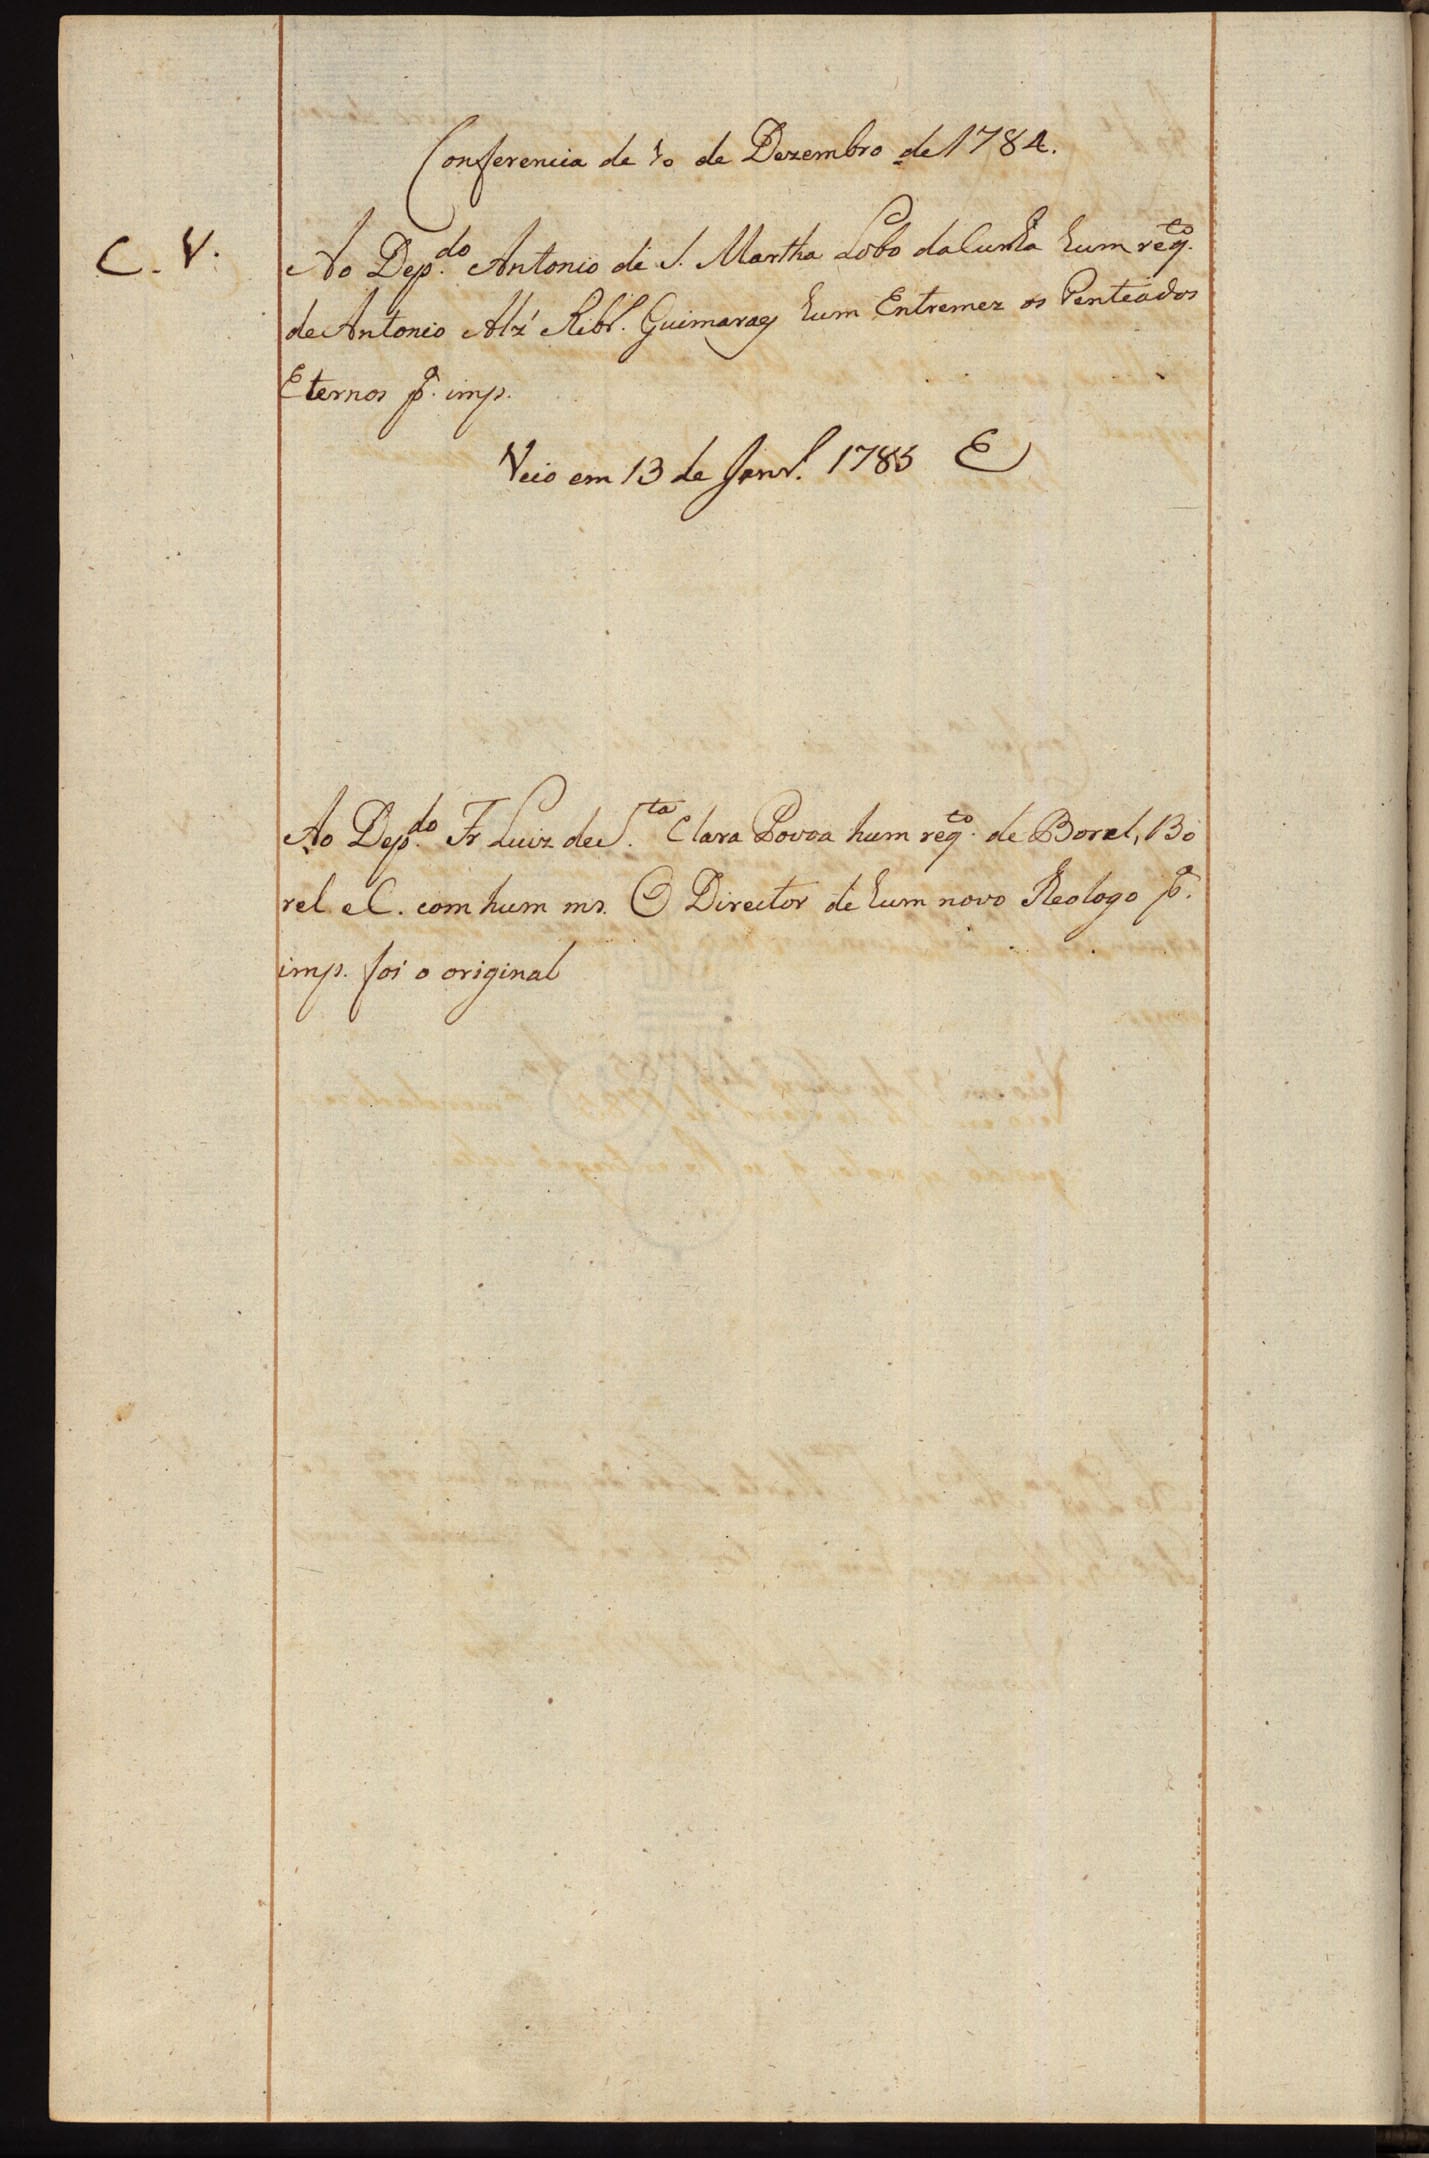 Conferencia de 10 de Dezembro de 1784.
C. V.
Ao Dep.do Antonio de S. Martha Lobo da Cunha hum req.to
de Antonio Alz' Ribr.o Guimaraẽs hum Entremez os Penteados
Eternos p.a imp.
Veio em 13 de Janr.o 1785 E
Ao Dep.do Fr Luiz de S.ta Clara Povoa hum req.to de Borel, Bo
rel e C. com hum ms. O Director de hum novo Reologo p.a
imp. foi o original